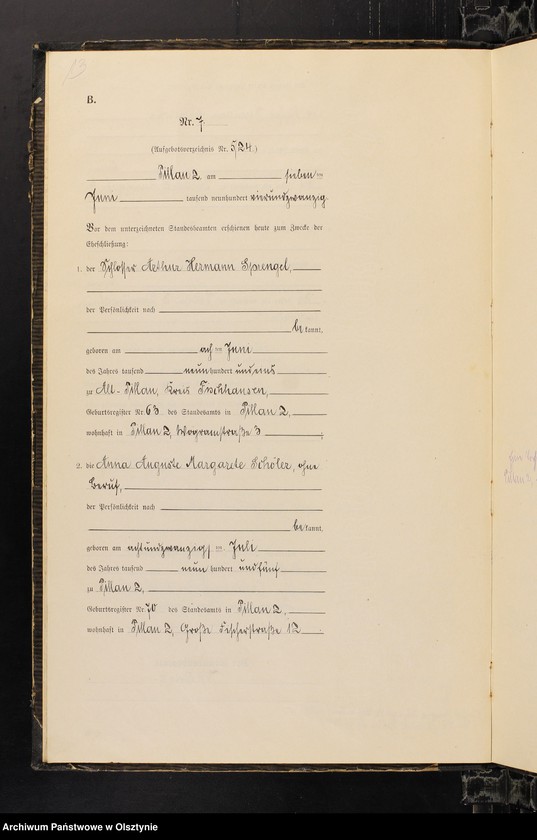 13
B.
Nr. 7.
(Aufgebotsverzeichnis Nr. 5/24.)
Pillau 2, am sieben ten
Juni tausend neunhundert vierundzwanzig.
Vor dem unterzeichneten Standesbeamten erschienen heute zum Zwecke der
Eheschließung:
1. der Schlosser Arthur Hermann Sprengel,
der Persönlichkeit nach
be kannt,
geboren am ach ten Juni
des Jahres tausend neun hundert undeins
zu Alt-Pillau, Kreis Fischhausen,
Geburtsregister Nr. 63 des Standesamts in Pillau 2,
wohnhaft in Pillau 2, Wogramstraße 3
2. die Anna Auguste Margarete Schöler, ohne
Beruf,
der Persönlichkeit nach
be kannt,
geboren am achtundzwanzigs ten Juli
des Jahres tausend neun hundert undfünf
zu Pillau 2,
Geburtsregister Nr. 70 des Standesamts in Pillau 2,
wohnhaft in Pillau 2, Große Fischerstraße 12
Archiwum Państwowe w Olsztynie